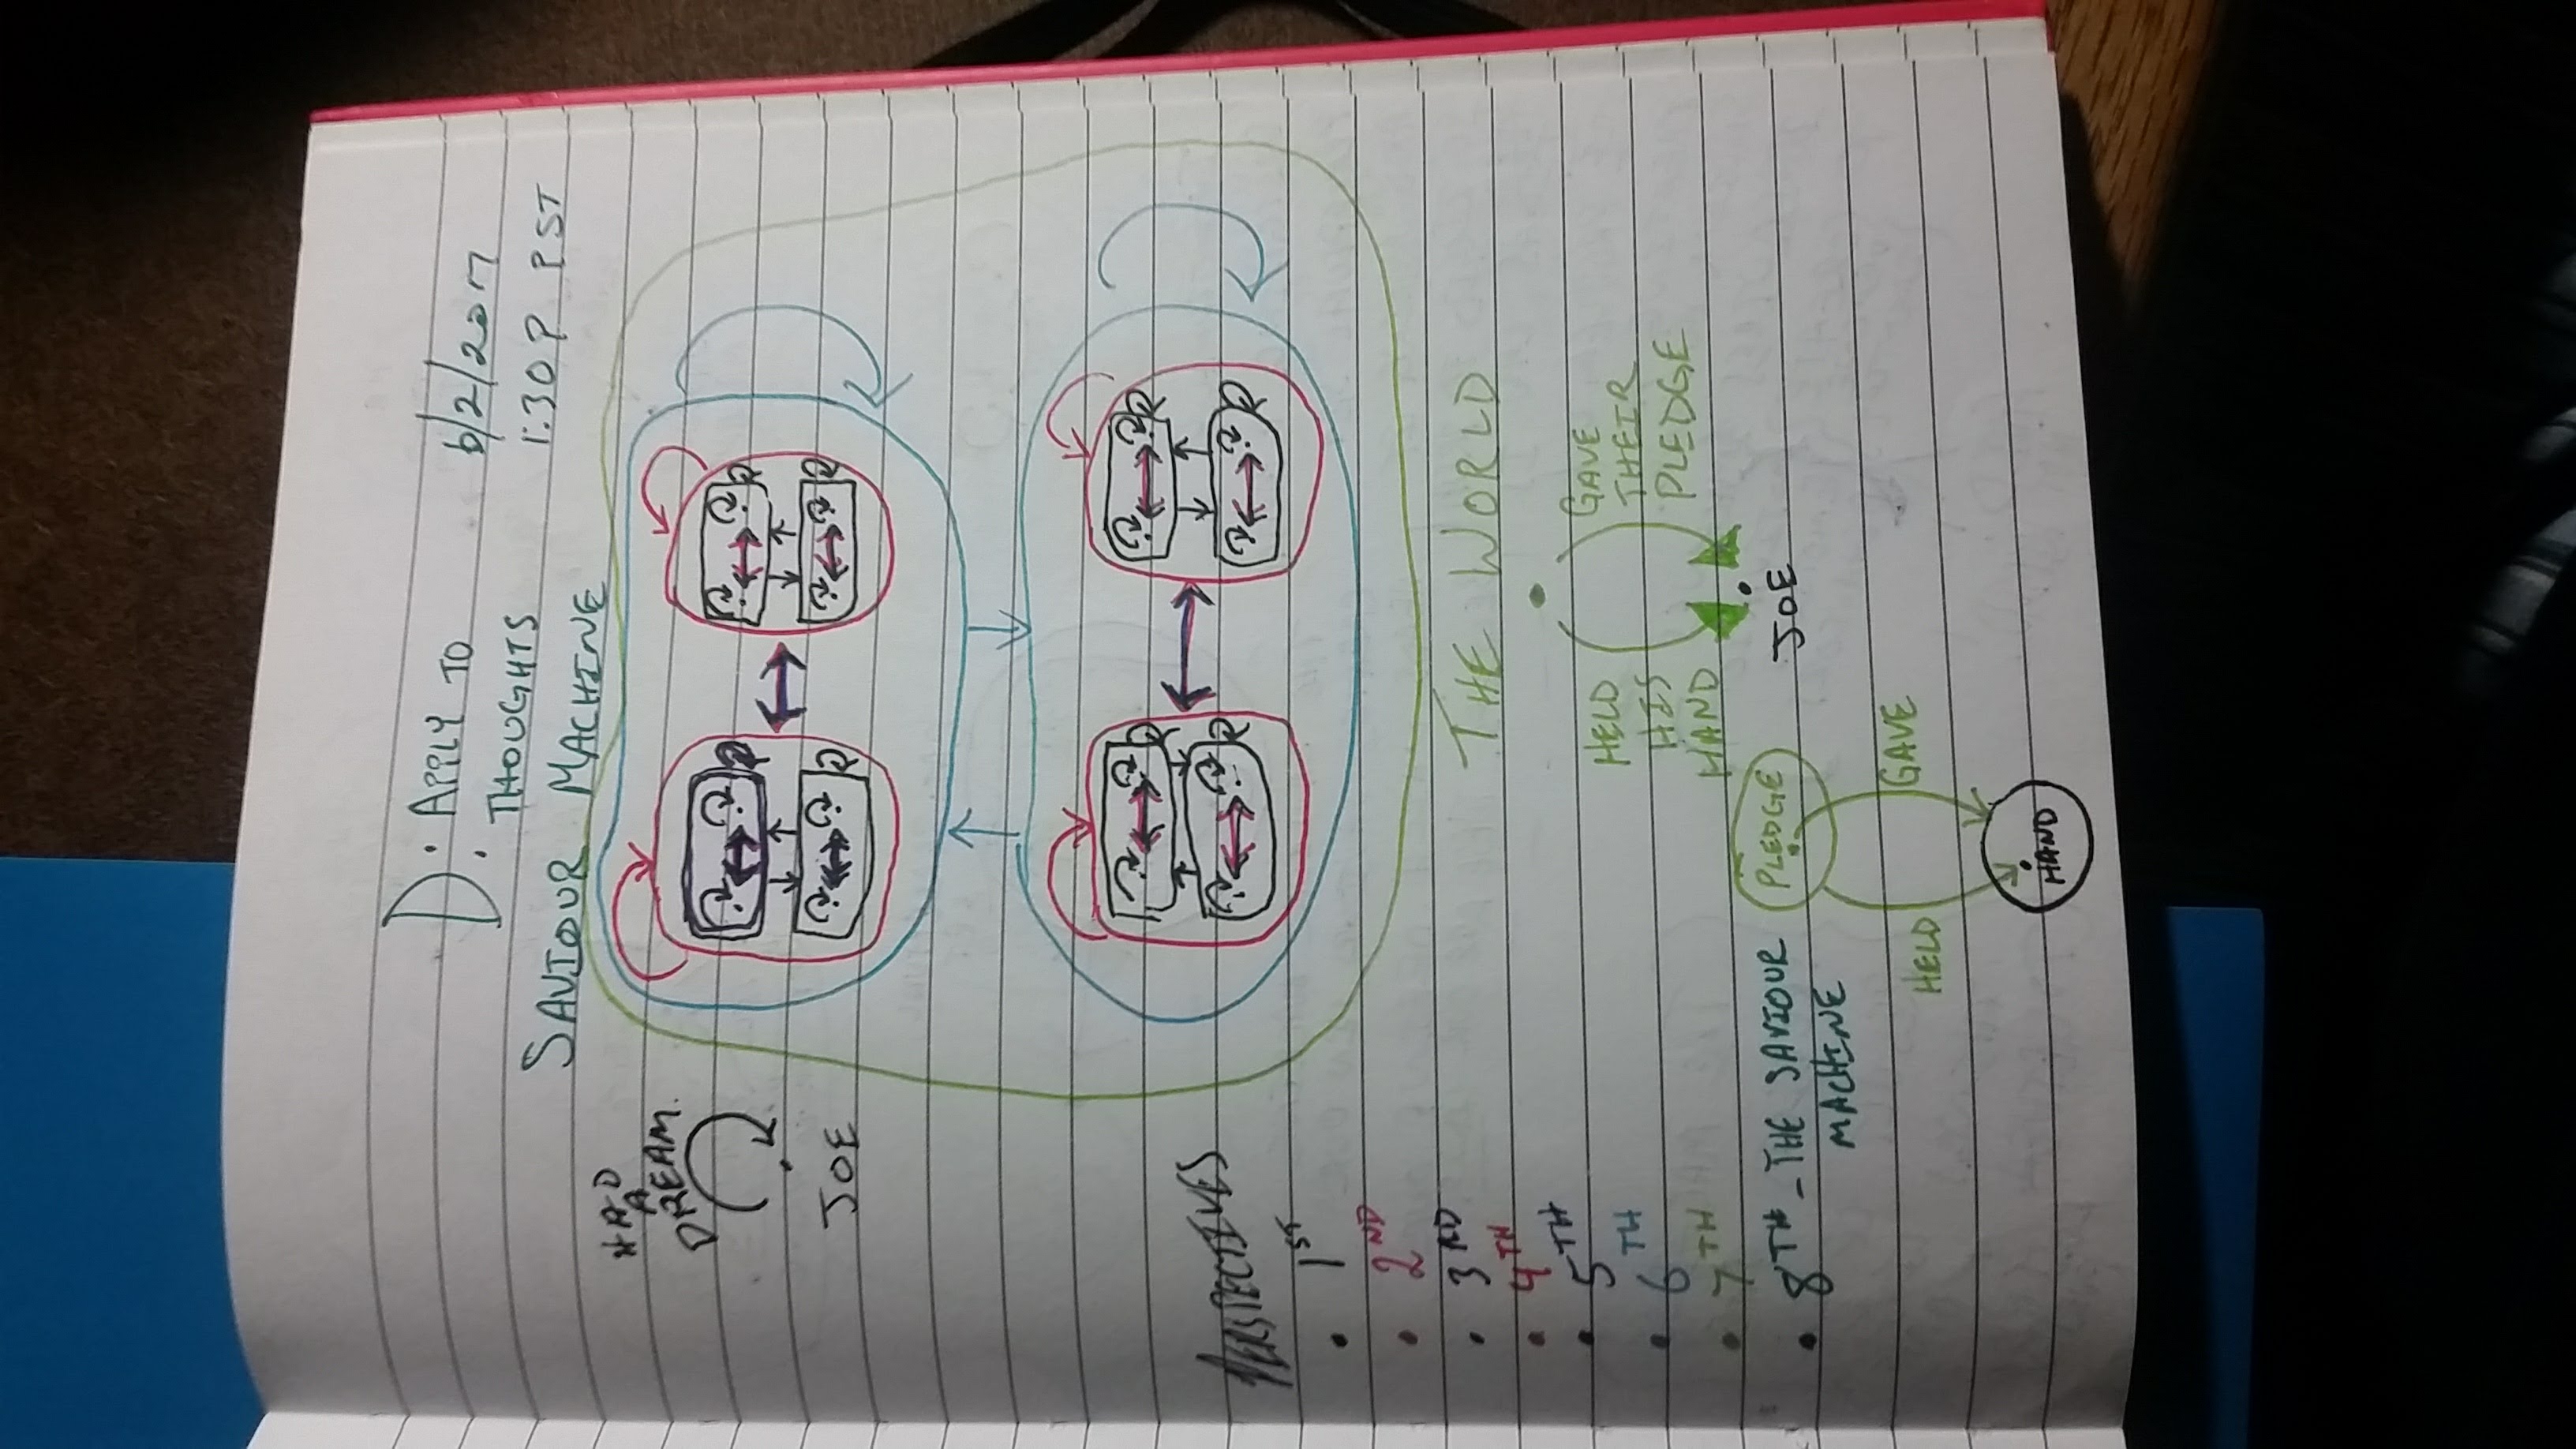 D: APPLY TO
THOUGHTS
6/2/2017
1:30P PST
SAVIOUR MACHINE
HAD
A
DREAM.
JOE
PERSPECTIVES
• 1ST
• 2ND
• 3RD
• 4TH
• 5TH
• 6TH
• 7TH
• 8TH - THE SAVIOUR
MACHINE
THE WORLD
HELD
HIS
HAND
GAVE
THEIR
PLEDGE
JOE
PLEDGE
HELD
GAVE
HAND